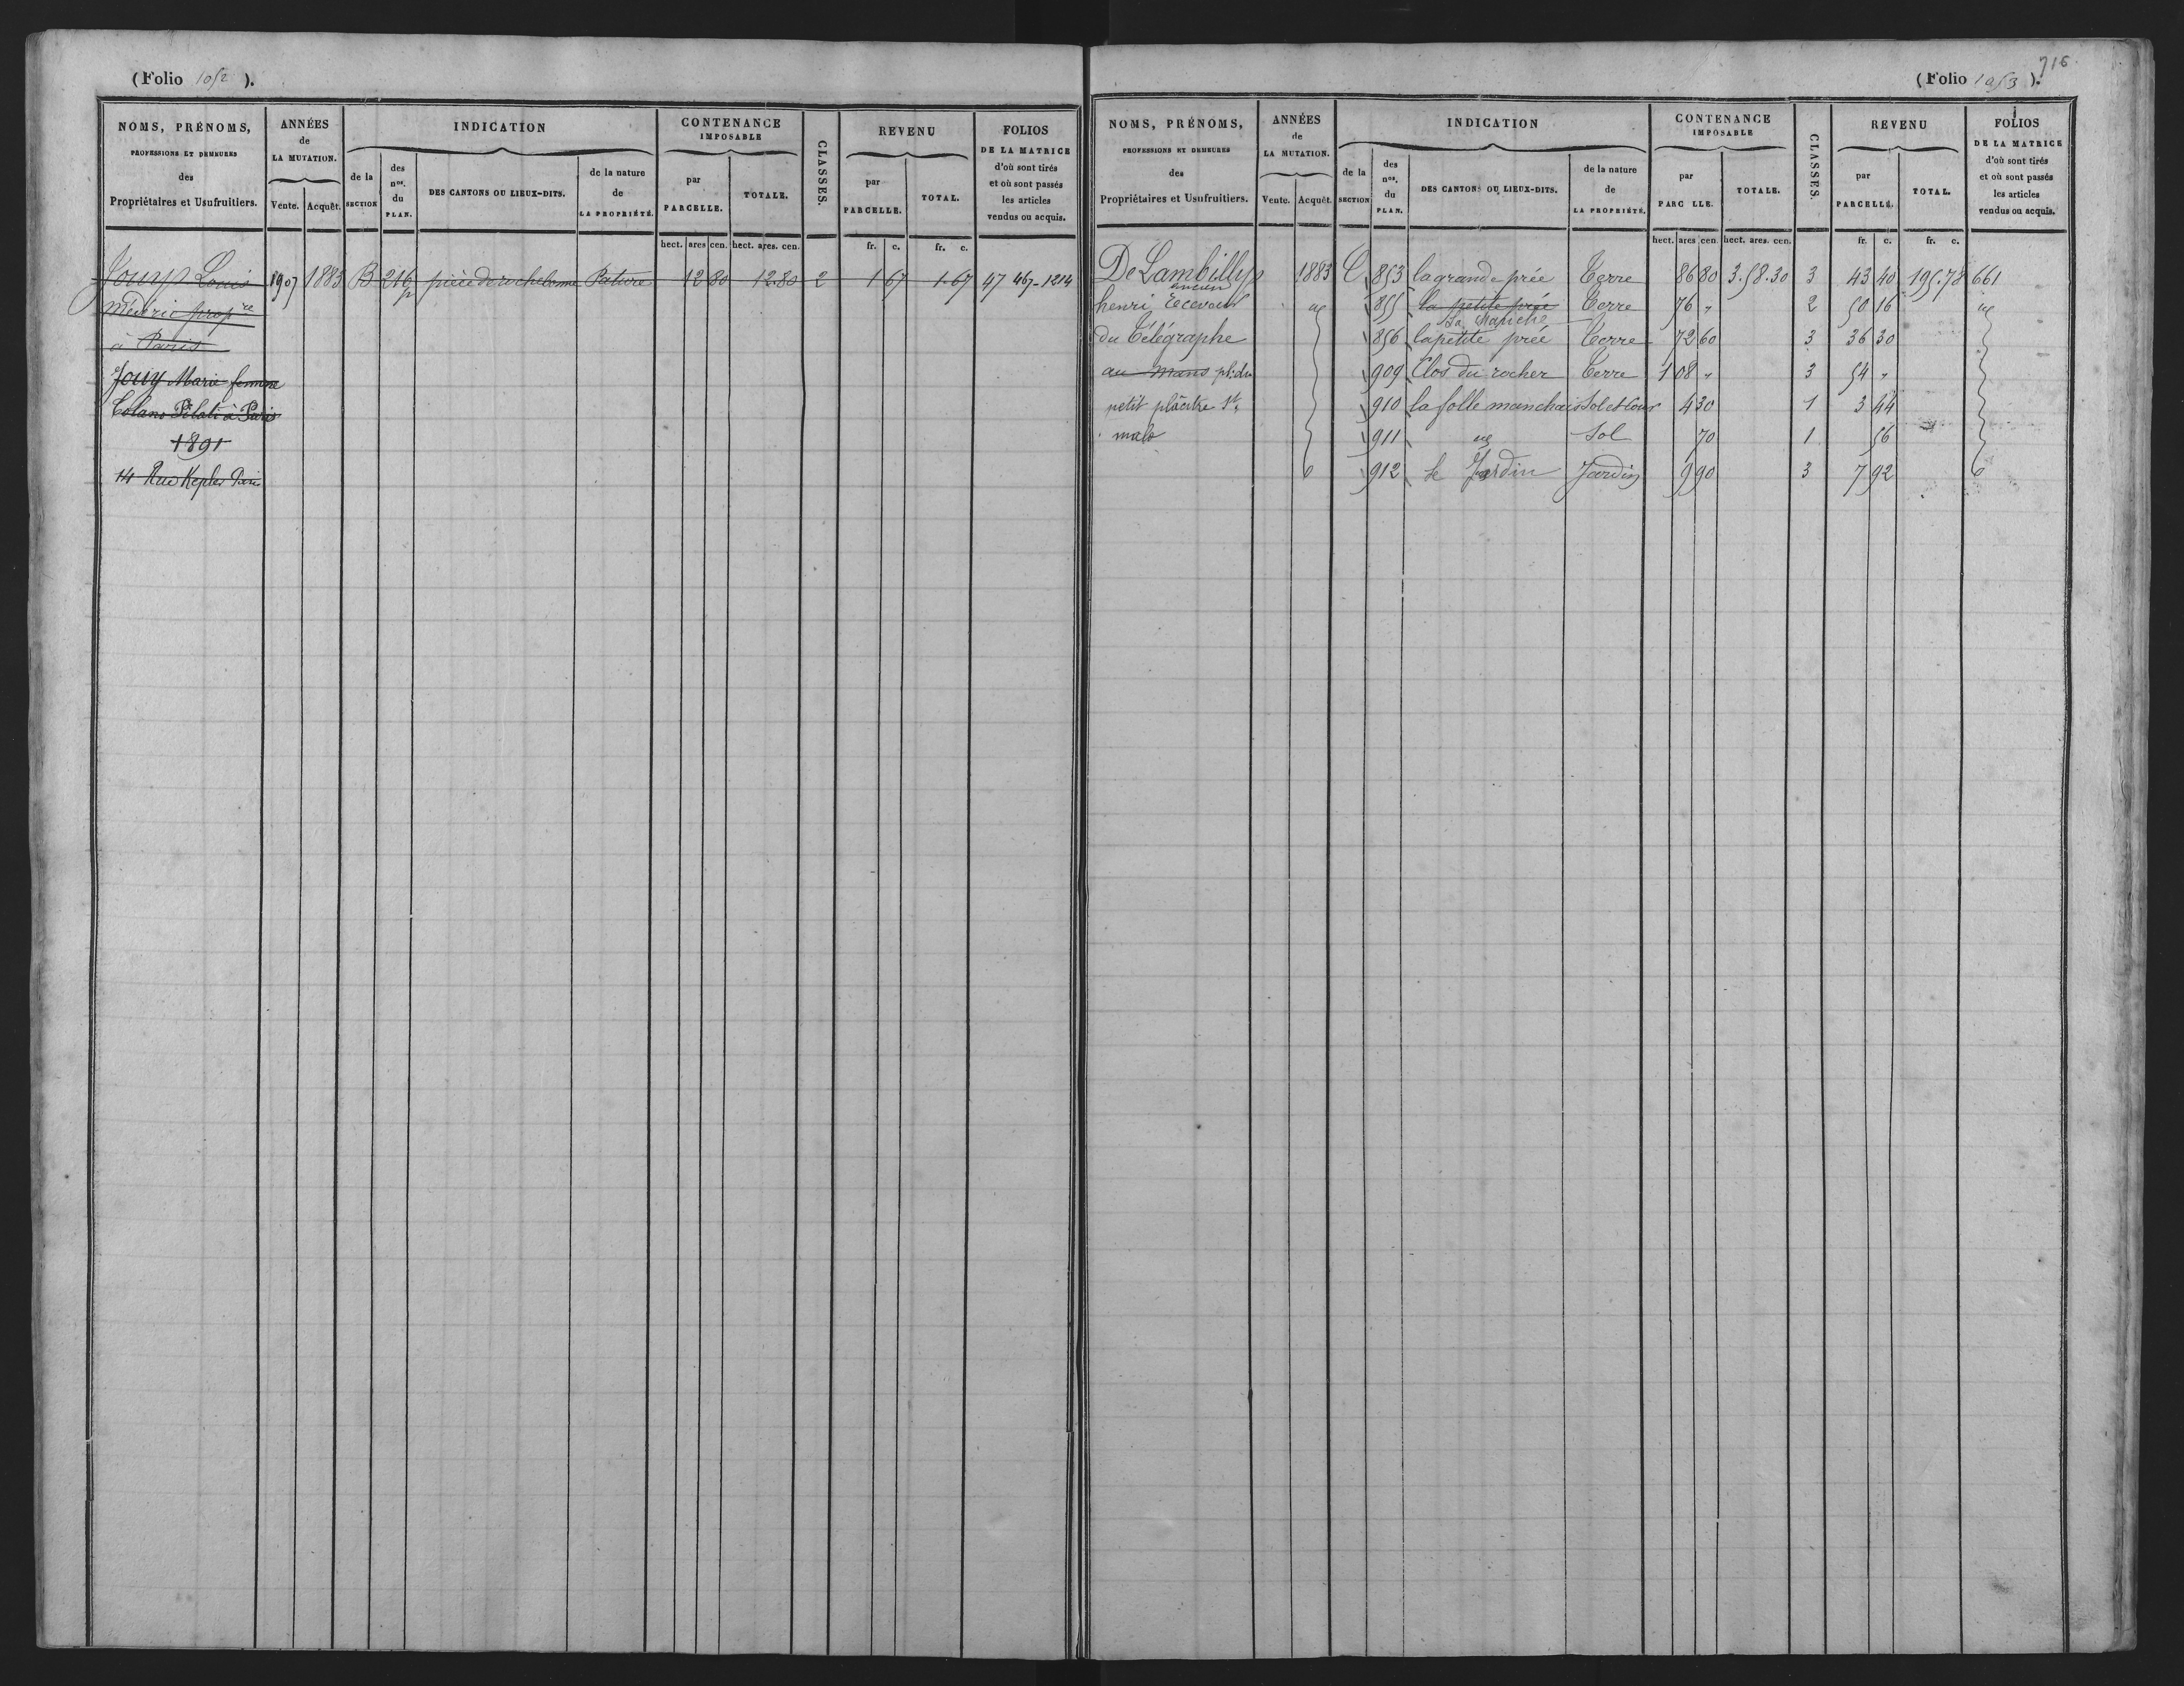 (Folio 1052 ).
NOMS, PRÉNOMS,
PROFESSIONS ET DEMEURES
des
Propriétaires et Usufruitiers.
ANNÉES
de
LA MUTATION.
Vente. Acquêt.
INDICATION
de la
SECTION
des
nos.
du
PLAN.
DES CANTONS OU LIEUX-DITS.
de la nature
de
LA PROPRIÉTÉ.
CONTENANCE
IMPOSABLE
par
PARCELLE.
TOTALE.
CLASSES.
REVENU
par
PARCELLE.
TOTAL.
FOLIOS
DE LA MATRICE
d'où sont tirés
et où sont passés
les articles
vendus ou acquis.
hect. ares cen. hect. ares. cen. fr. c. fr. c.
Jouy Louis 1907 1883 B 216 p pièce de rochebonne Pature 12 80 12.80 2 1 67 1.67 47 467-1214
Médéric propre
à Paris
Jouy Marie femme
Colano Pilati à Paris
1891
14 Rue Kepler Paris
716
(Folio 1053 ).
NOMS, PRÉNOMS,
PROFESSIONS ET DEMEURES
des
Propriétaires et Usufruitiers.
ANNÉES
de
LA MUTATION.
Vente. Acquêt.
INDICATION
de la
SECTION
des
nos.
du
PLAN.
DES CANTONS OU LIEUX-DITS.
de la nature
de
LA PROPRIÉTÉ.
CONTENANCE
IMPOSABLE
par
PARC LLE.
TOTALE.
CLASSES.
REVENU
par
PARCELLE.
TOTAL.
FOLIOS
DE LA MATRICE
d'où sont tirés
et où sont passés
les articles
vendus ou acquis.
hect. ares cen. hect. ares. cen. fr. c. fr. c.
De Lambilly 1883 C 853 la grande prée Terre 86 80 3.58.30 3 43 40 195.78 661
ancien
henri 855 la petite prée Terre 76 " 2 50 16
La Manche
du Télégraphe 856 la petite prée Terre 72 60 3 36 30
au Mans pl. du 909 Clos du rocher Terre 1 08 " 3 54 "
petit placitre St 910 la folle manchais Sol et Cour 4 30 1 3 44
malo 911 Sol 70 1 56
912 le Jardin Jardin 9 90 3 7 92